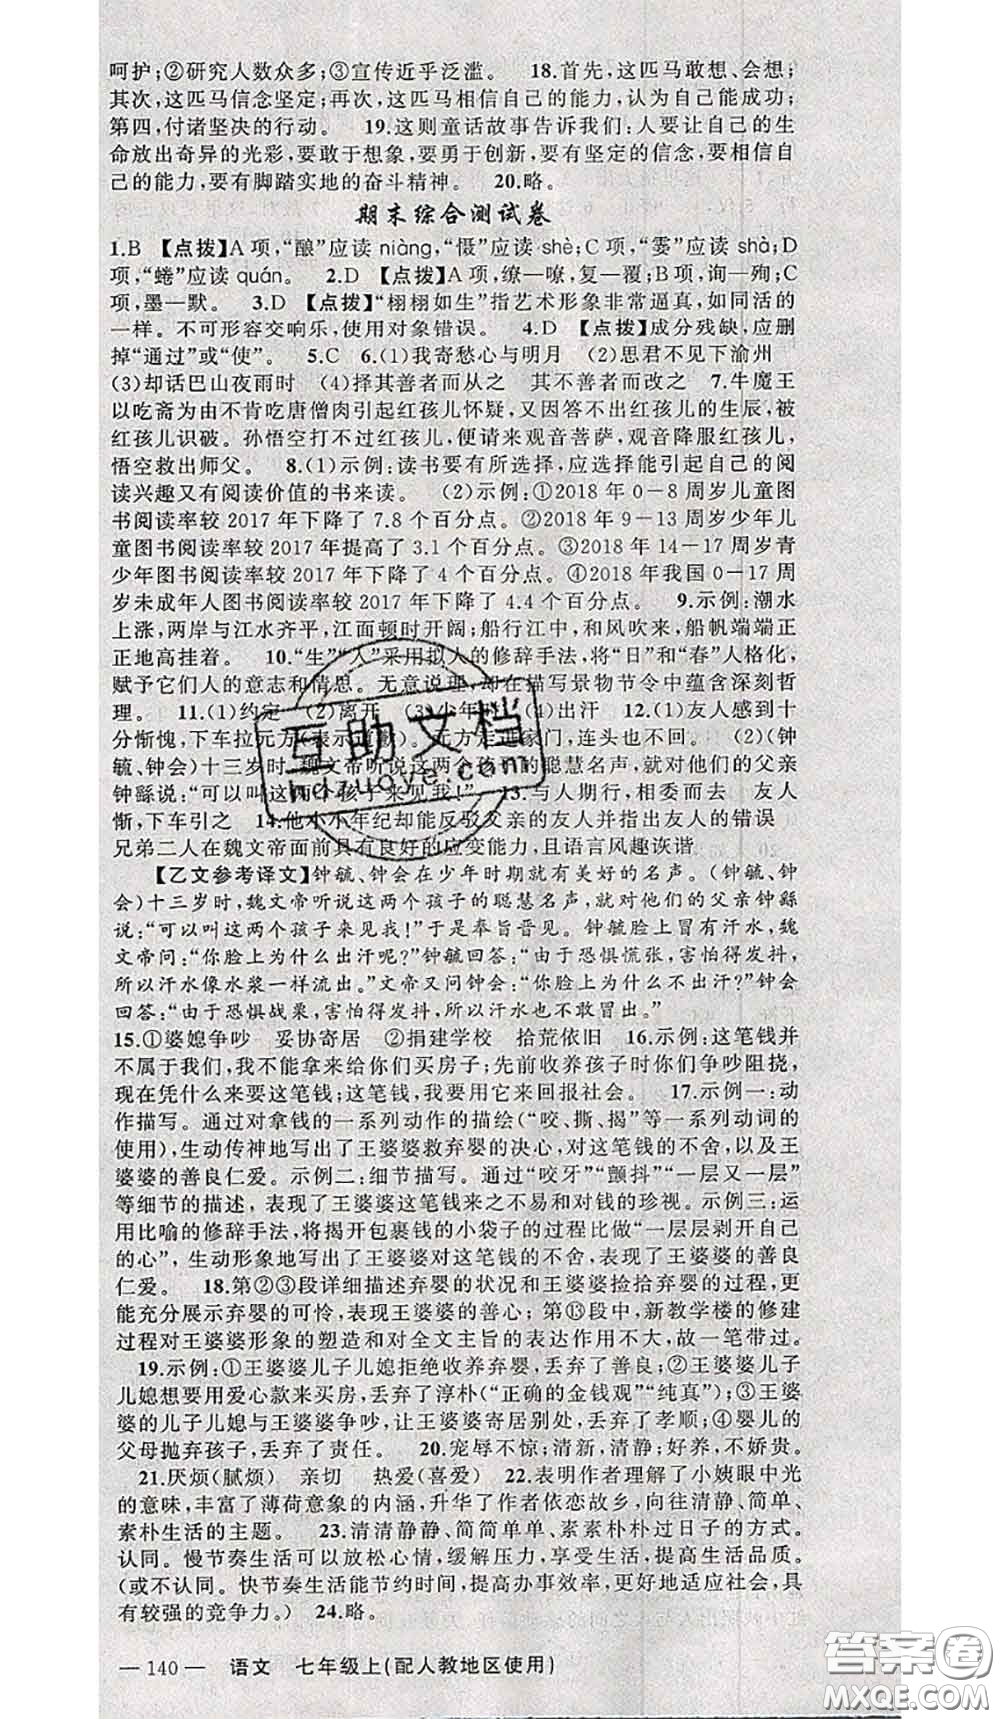 呵护;②研究人数众多;③宣传近乎泛滥。 18.首先,这匹马敢想、会想;
其次,这匹马信念坚定;再次,这匹马相信自己的能力,认为自己能成功;
第四,付诸坚决的行动。 19.这则童话故事告诉我们:人要让自己的生
命放出奇异的光彩,要敢于想象,要勇于创新,要有坚定的信念,要相信自
己的能力,要有脚踏实地的奋斗精神。 20.略。
期末综合测试卷
1.B 【点拨】A项,“酿”应读 niàng,“慑”应读 shè;C项,“霎”应读 shà;D
项,“蜷”应读 quán。 2.D 【点拨】A项,缭—嘹,复—覆;B项,询—殉;C
项,墨—默。 3.D 【点拨】“栩栩如生”指艺术形象非常逼真,如同活的
一样。不可形容交响乐,使用对象错误。 4.D 【点拨】成分残缺,应删
掉“通过”或“使”。 5.C 6.(1)我寄愁心与明月 (2)思君不见下渝州
(3)却话巴山夜雨时 (4)择其善者而从之 其不善者而改之 7.牛魔王
以吃斋为由不肯吃唐僧肉引起红孩儿怀疑,又因答不出红孩儿的生辰,被
红孩儿识破。孙悟空打不过红孩儿,便请来观音菩萨,观音降服红孩儿,
悟空救出师父。 8.(1)示例:读书要有所选择,应选择能引起自己的阅
读兴趣又有阅读价值的书来读。 (2)示例:①2018年0-8周岁儿童图
书阅读率较2017年下降了7.8个百分点。②2018年9-13周岁少年儿
童图书阅读率较2017年提高了3.1个百分点。③2018年14-17周岁青
少年图书阅读率较2017年下降了4个百分点。④2018年我国0-17周
岁未成年人图书阅读率较2017年下降了4.4个百分点。 9.示例:潮水
上涨,两岸与江水齐平,江面顿时开阔;船行江中,和风吹来,船帆端端正
正地高挂着。 10.“生”“入”采用拟人的修辞手法,将“日”和“春”人格化,
赋予它们人的意志和情思。无意说理,却在描写景物节令中蕴含深刻哲
理。 11.(1)约定 (2)离开 (3)少年时 (4)出汗 12.(1)友人感到十
分惭愧,下车拉元方(表示道歉)。元方走进家门,连头也不回。 (2)(钟
毓、钟会)十三岁时,魏文帝听说这两个孩子的聪慧名声,就对他们的父亲
钟繇说:“可以叫这两个孩子来见我!” 13.与人期行,相委而去 友人
惭,下车引之 14.他小小年纪却能反驳父亲的友人并指出友人的错误
兄弟二人在魏文帝面前具有良好的应变能力,且语言风趣诙谐
【乙文参考译文】钟毓、钟会在少年时期就有美好的名声。(钟毓、钟
会)十三岁时,魏文帝听说这两个孩子的聪慧名声,就对他们的父亲钟繇
说:“可以叫这两个孩子来见我!”于是奉旨晋见。钟毓脸上冒有汗水,魏
文帝问:“你脸上为什么出汗呢?”钟毓回答:“由于恐惧慌张,害怕得发抖,
所以汗水像水浆一样流出。”文帝又问钟会:“你脸上为什么不出汗?”钟会
回答:“由于恐惧战栗,害怕得发抖,所以汗水也不敢冒出。”
15.①婆媳争吵 妥协寄居 ②捐建学校 拾荒依旧 16.示例:这笔钱并
不属于我们,我不能拿来给你们买房子;先前收养孩子时你们争吵阻挠,
现在凭什么来要这笔钱;这笔钱,我要用它来回报社会。 17.示例一:动
作描写。通过对拿钱的一系列动作的描绘(“咬、撕、揭”等一系列动词的
使用),生动传神地写出了王婆婆救弃婴的决心,对这笔钱的不舍,以及王
婆婆的善良仁爱。示例二:细节描写。通过“咬牙”“颤抖”“一层又一层”
等细节的描述,表现了王婆婆这笔钱来之不易和对钱的珍视。示例三:运
用比喻的修辞手法,将打开包裹钱的小袋子的过程比做“一层层剥开自己
的心”,生动形象地写出了王婆婆对这笔钱的不舍,表现了王婆婆的善良
仁爱。 18.第②③段详细描述弃婴的状况和王婆婆捡拾弃婴的过程,更
能充分展示弃婴的可怜,表现王婆婆的善心;第⑬段中,新教学楼的修建
过程对王婆婆形象的塑造和对全文主旨的表达作用不大,故一笔带过。
19.示例:①王婆婆儿子儿媳拒绝收养弃婴,丢弃了善良;②王婆婆儿子
儿媳想要用爱心款来买房,丢弃了淳朴(“正确的金钱观”“纯真”);③王婆
婆的儿子儿媳与王婆婆争吵,让王婆婆寄居别处,丢弃了孝顺;④婴儿的
父母抛弃孩子,丢弃了责任。 20.宠辱不惊;清新,清静;好养,不娇贵。
21.厌烦(腻烦) 亲切 热爱(喜爱) 22.表明作者理解了小姨眼中光
的意味,丰富了薄荷意象的内涵,升华了作者依恋故乡,向往清静、简单、
素朴生活的主题。 23.清清静静、简简单单、素素朴朴过日子的方式。
认同。慢节奏生活可以放松心情,缓解压力,享受生活,提高生活品质。
(或不认同。快节奏生活能节约时间,提高办事效率,更好地适应社会,具
有较强的竞争力。) 24.略。
— 140 — 语文 七年级上(配人教地区使用)
互助文档
hdzuoye.com
答案圈
MXQE.COM